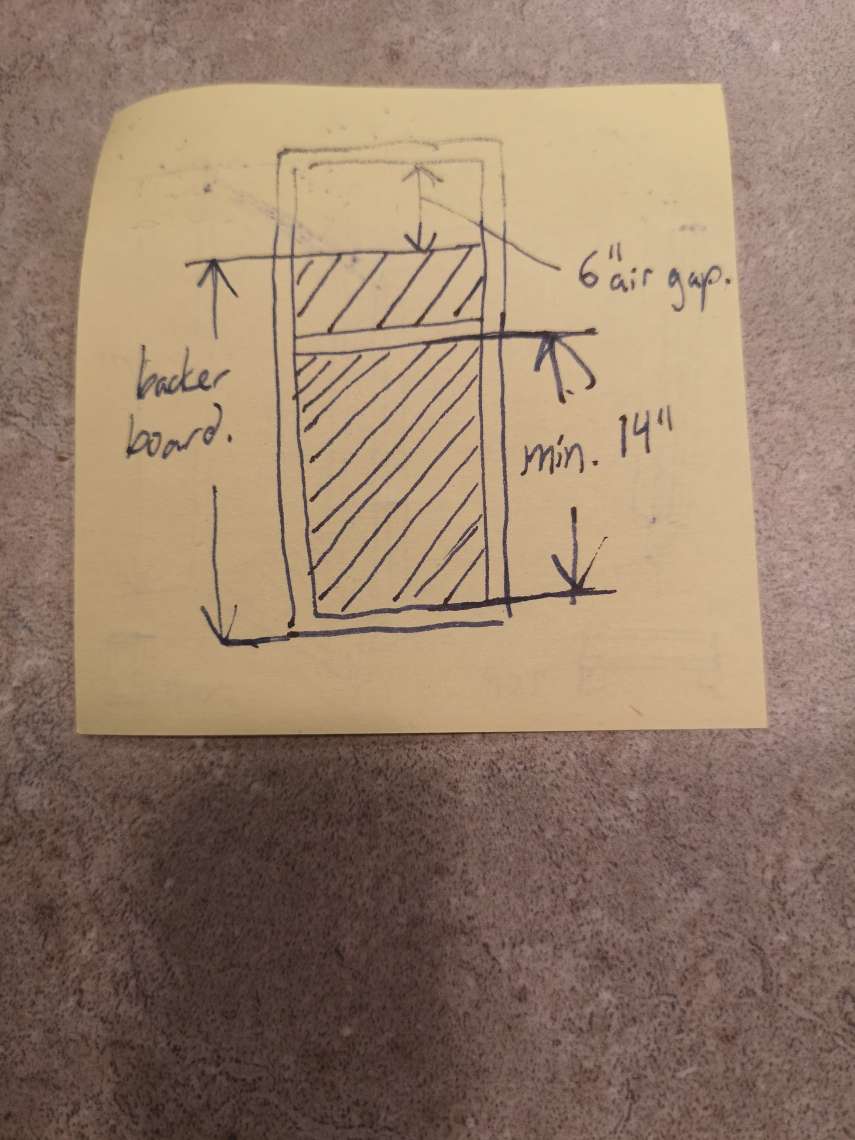 6" air gap.
backer
board.
min. 14"